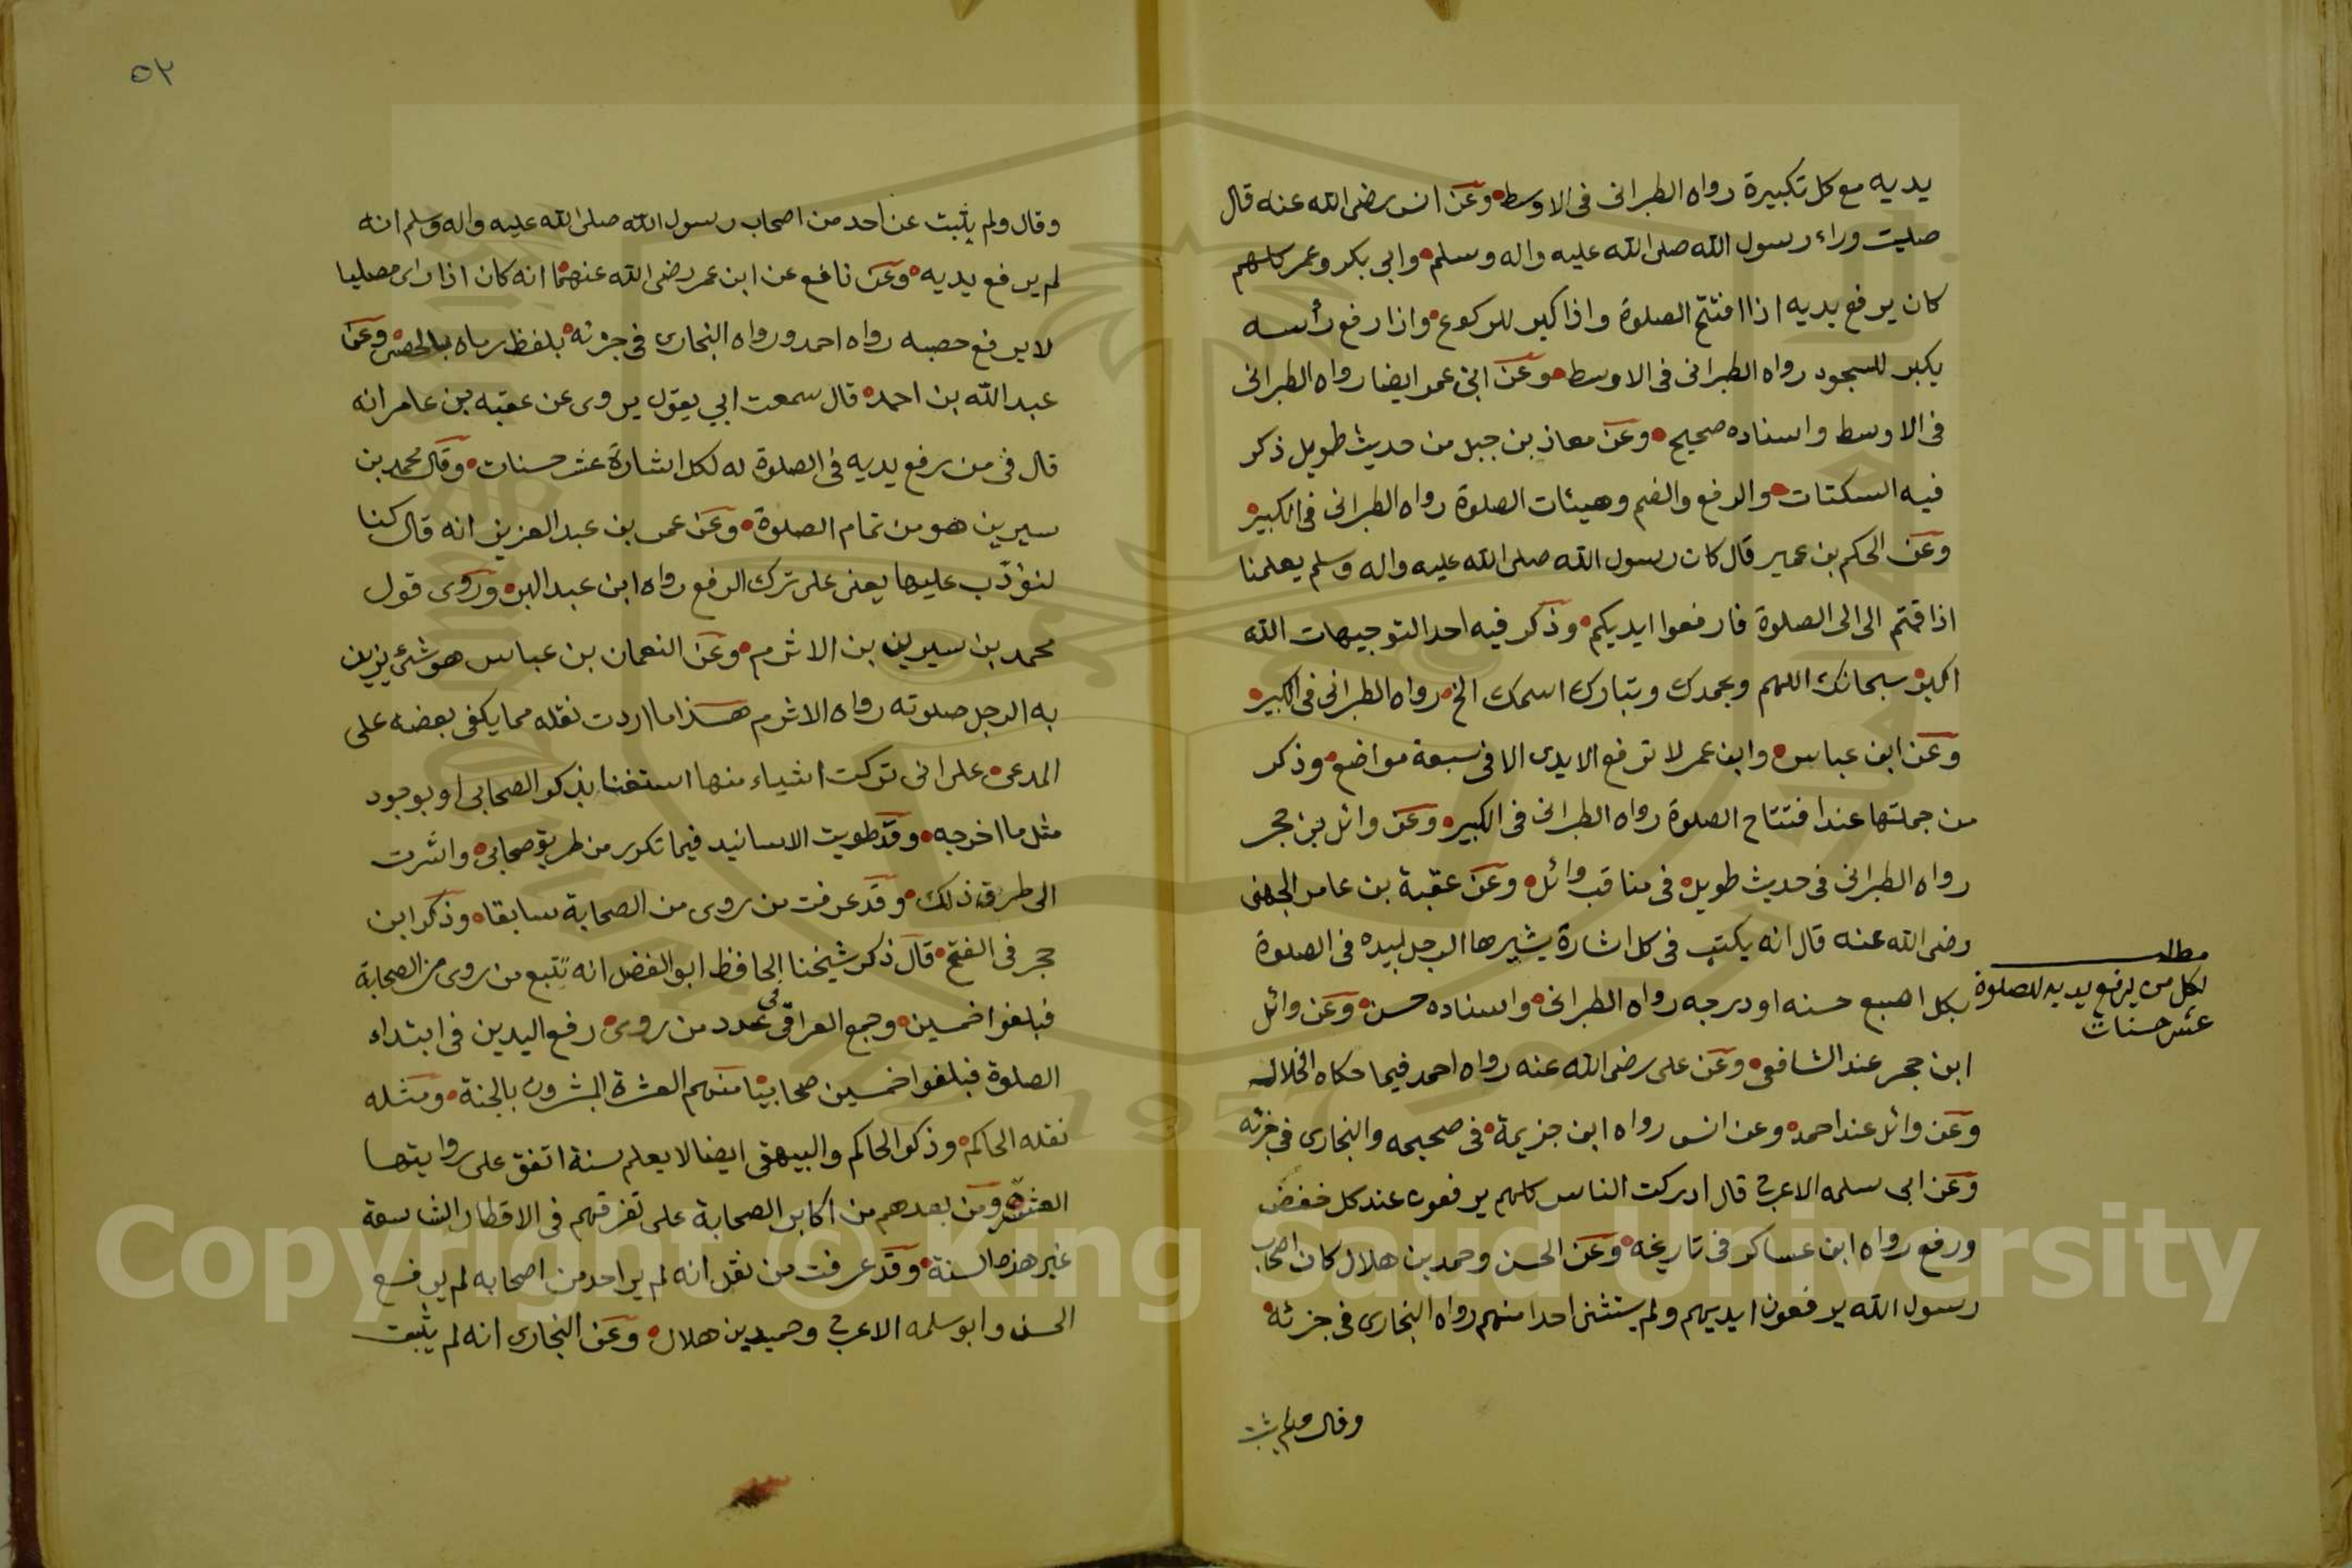 يديه مع كل تكبيرة رواه الطبرانى فى الاوسط وعن انس رضى الله عنه قال
صليت وراء رسول الله صلى الله عليه واله وسلم وابي بكر وعمر كلهم
كان يرفع يديه اذا افتتح الصلوة واذا كبر للركوع واذا رفع رأسه
يكبر للسجود رواه الطبرانى فى الاوسط وعن ابن عمر ايضا رواه الطبرانى
فى الاوسط واسناده صحيح وعن معاذ بن جبل من حديث طويل ذكر
فيه السكتات والرفع والضم وهيئات الصلوة رواه الطبرانى فى الكبير
وعن الحكم بن عمير قال كان رسول الله صلى الله عليه واله وسلم يعلمنا
اذا قمتم الى الى الصلوة فارفعوا ايديكم وذكر فيه احد التوجيهات الله
اكبر سبحانك اللهم وبحمدك وتبارك اسمك الخ رواه الطبرانى فى الكبير
وعن ابن عباس وابن عمر لا ترفع الايدى الا فى سبعة مواضع وذكر
من جملتها عند افتتاح الصلوة رواه الطبرانى فى الكبير وعن وائل بن حجر
رواه الطبرانى فى حديث طويل فى مناقب وائل وعن عقبة بن عامر الجهنى
رضى الله عنه قال انه يكتب فى كل اشارة يشيرها الرجل بيده فى الصلوة
بكل اصبع حسنه او درجه رواه الطبرانى واسناده حسن وعن وائل
ابن حجر عند الشافعى وعن على رضى الله عنه رواه احمد فيما حكاه الخلال
وعن وائل عند احمد وعن انس رواه ابن خزيمة فى صحيحه والبخارى فى جزئه
وعن ابى سلمه الاعرج قال ادركت الناس كلهم يرفعون عند كل خفض
ورفع رواه ابن عساكر فى تاريخه وعن الحسن وحمد بن هلال كان اصحاب
رسول الله يرفعون ايديهم ولم يستثنى احدا منهم رواه البخارى فى جزئه
وقال ولم يثبت
مطلب
لكل من يرفع يديه للصلوة
عشر حسنات
٥٢
وقال ولم يثبت عن احد من اصحاب رسول الله صلى الله عليه واله وسلم انه
لم يرفع يديه وعن نافع عن ابن عمر رضى الله عنهما انه كان اذا راى مصليا
لا يرفع حصبه رواه احمد ورواه البخارى فى جزئه بلفظ رماه بالحصى وعن
عبد الله بن احمد قال سمعت ابي يقول يروى عن عقبه بن عامر انه
قال فى من رفع يديه فى الصلوة له لكل اشارة عشر حسنات وقال محمد بن
سيرين هو من تمام الصلوة وعن عمر بن عبد العزيز انه قال كنا
لنؤدب عليها يعنى على ترك الرفع رواه ابن عبد البر وروى قول
محمد بن سيرين بن الاثرم وعن النعمان بن عباس هو شئ يزين
به الرجل صلوته رواه الاثرم هذا ما اردت نقله مما يكفى بعضه على
المدعى على انى تركت اشياء منها استغنا بذكر الصحابى او بوجود
مثل ما اخرجه وقد طويت الاسانيد فيما تكرر من طريق صحابى واشرت
الى طرق ذلك وقد عرفت من روى من الصحابة سابقا وذكر ابن
حجر فى الفتح قال ذكر شيخنا الحافظ ابو الفضل انه تتبع من روى من الصحابة
فبلغوا خمسين وجمع العراقى فى عدد من روى رفع اليدين فى ابتداء
الصلوة فبلغوا خمسين صحابيا منهم العشرة المبشرون بالجنة ومثله
نقله الحاكم وذكر الحاكم والبيهقى ايضا لا يعلم سنة اتفق على روايتها
العشرة ومن بعدهم من اكابر الصحابة على تفرقهم فى الاقطار الشاسعة
غير هذه السنة وقد عرفت من نقل انه لم ير احد من اصحابه لم يرفع
الحسن وابو سلمه الاعرج وحميد بن هلال وعن البخارى انه لم يثبت
Copyright © King Saud University
1957